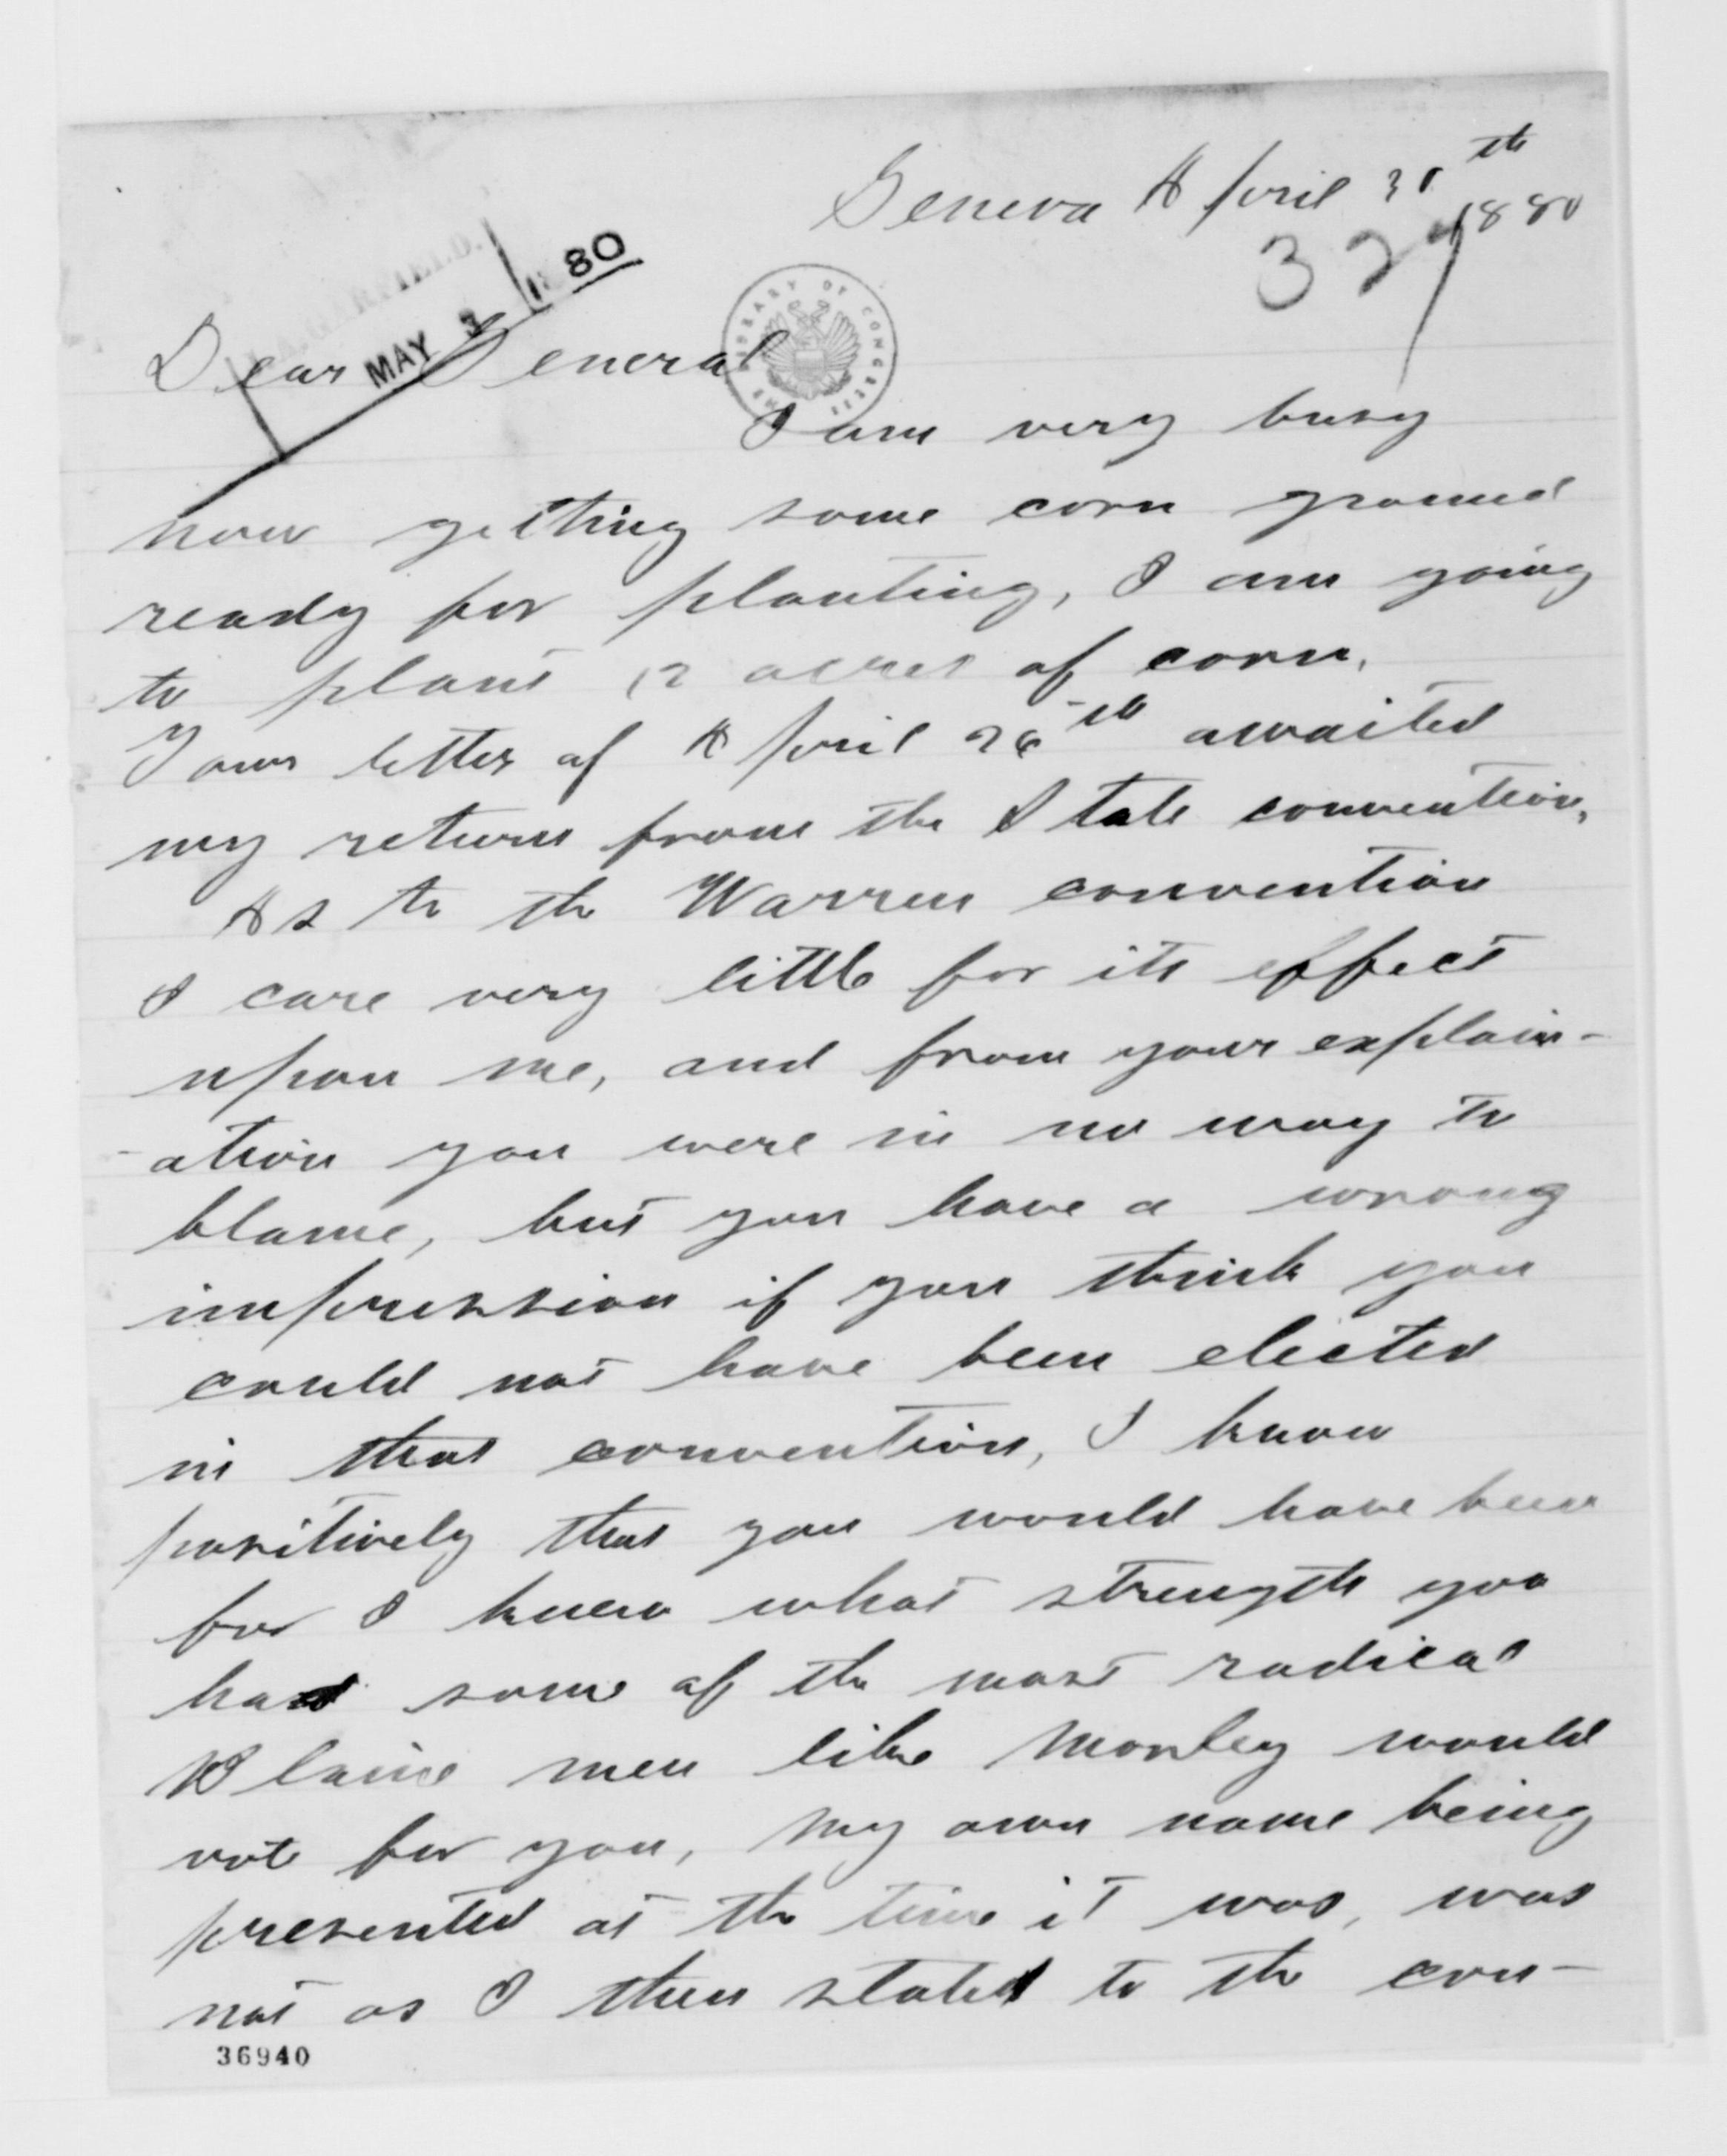 Geneva April 30th
1880
324
J.A. GARFIELD.
MAY 3 1880
LIBRARY OF CONGRESS
Dear General
I am very busy
now getting some corn ground
ready for planting, I am going
to plant 12 acres of corn.
Your letter of April 26th awaited
my return from the State convention,
As to the Warren convention
I care very little for its effect
upon me, and from your explain-
-ation you were in no way to
blame, but you have a wrong
impression if you think you
could not have been elected
in that convention, I know
positively that you would have been
for I knew what strength you
had some of the most radical
Blaine men like Morley would
vote for you, My own name being
presented at the time it was, was
not as I then stated to the con-
36940